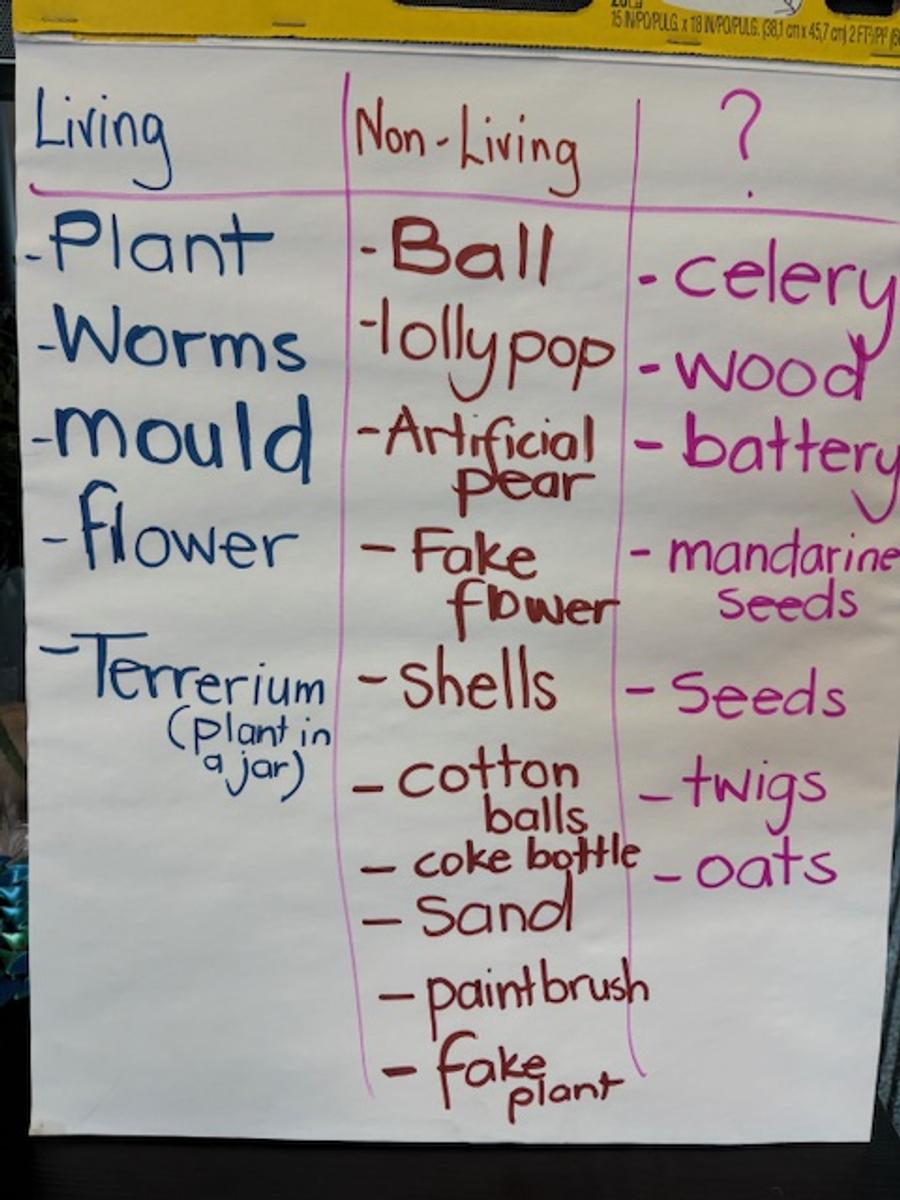 15 IN/PO/PULG. x 18 IN/PO/PULG. (38,1 cm x 45,7 cm) 2 FT²/PI²
Living
- Plant
- Worms
- mould
- flower
- Terrerium
(plant in
a jar)
Non-Living
- Ball
- lollypop
- Artificial
pear
- Fake
flower
- Shells
- cotton
balls
- coke bottle
- Sand
- paintbrush
- fake
plant
?
- celery
- wood
- battery
- mandarine
seeds
- Seeds
- twigs
- oats